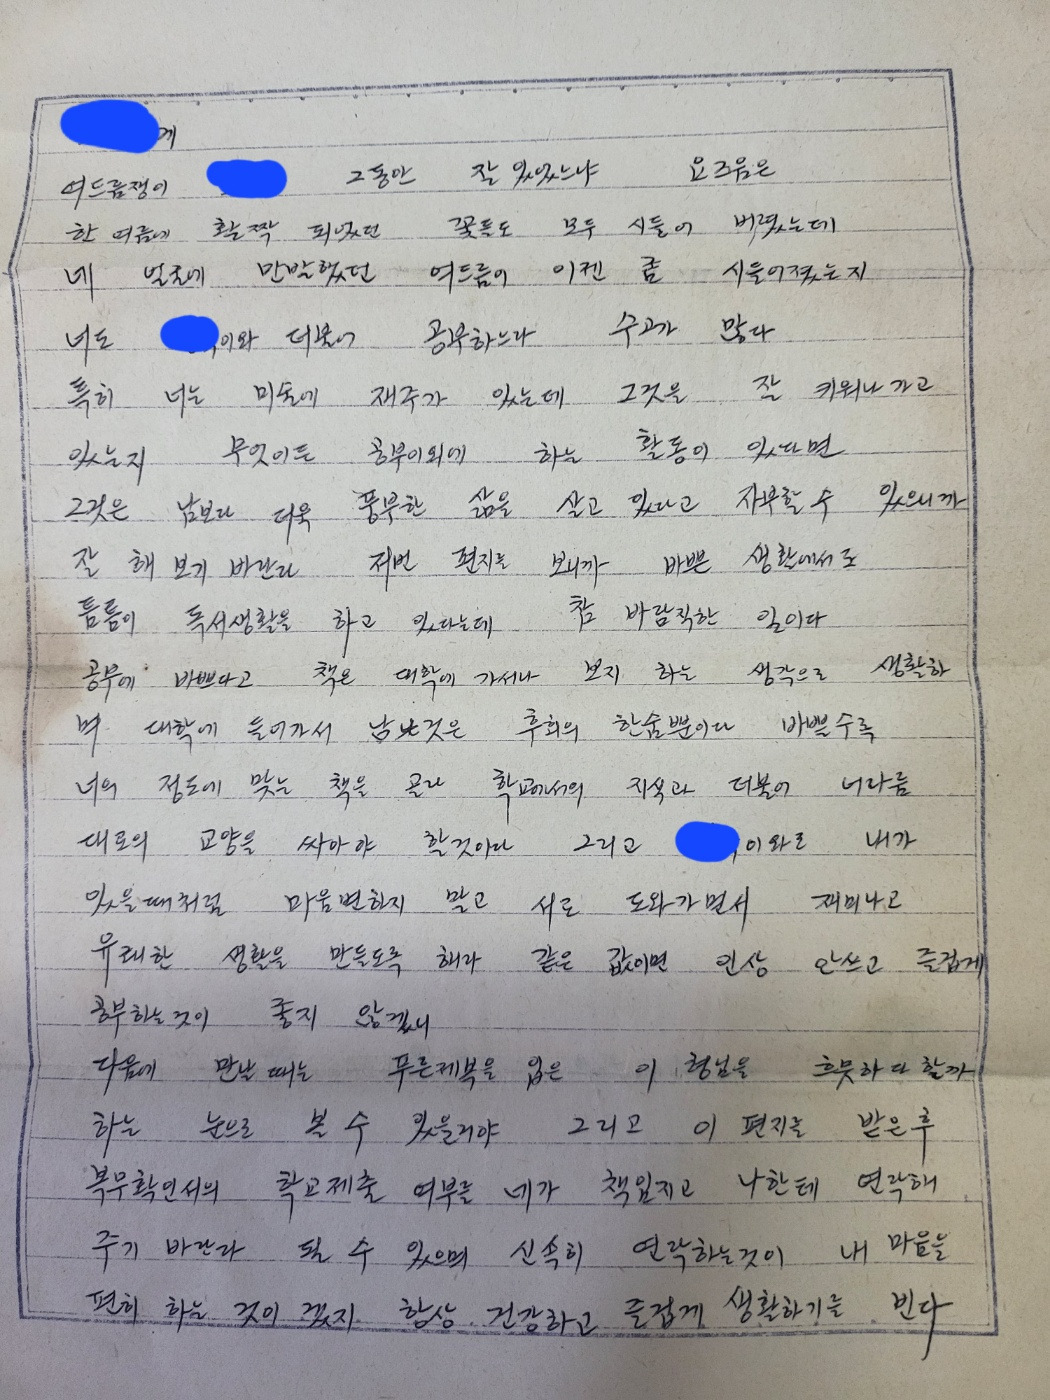 게
여드름쟁이 그동안 잘 있었느냐 요즈음은
한 여름에 활짝 피었던 꽃들도 모두 시들어 버렸는데
네 얼굴에 만발했던 여드름이 이젠 좀 시들어졌는지
너도 이와 더불어 공부하느라 수고가 많다
특히 너는 미술에 재주가 있는데 그것을 잘 키워나가고
있는지 무엇이든 공부이외에 하는 활동이 있다면
그것은 남보다 더욱 풍부한 삶을 살고 있다고 자부할 수 있으니까
잘 해 보기 바란다 저번 편지를 보니까 바쁜 생활에서도
틈틈이 독서생활을 하고 있다는데 참 바람직한 일이다
공부에 바쁘다고 책은 대학에 가서나 보지 하는 생각으로 생활하
며 대학에 들어가서 남는것은 후회의 한숨뿐이다 바쁠수록
너의 정도에 맞는 책을 골라 학교에서의 지식과 더불어 너나름
대로의 교양을 싸아야 할것이다 그리고 이와로 내가
있을때처럼 마음변하지 말고 서로 도와가면서 재미나고
유쾌한 생활을 만들도록 해라 같은 값이면 인상 안쓰고 즐겁게
공부하는것이 좋지 않겠니
다음에 만날때는 푸른제복을 입은 이 형님을 흐뭇하다 할까
하는 눈으로 볼 수 있을거야 그리고 이 편지를 받은후
복무확인서의 학교제출 여부를 네가 책임지고 나한테 연락해
주기 바란다 될 수 있으며 신속히 연락하는것이 내 마음을
편히 하는 것이 겠지 항상 건강하고 즐겁게 생활하기를 빈다